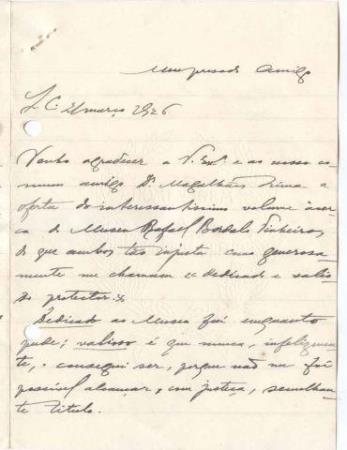 Meu presado Amigo
S. C. 21 março 926
Venho agradecer a V. Exª e ao nosso co-
mum amigo Dr. Magalhães Lima a
oferta do interessantissimo volume àcer-
ca do Museu Rafael Bordalo Pinheiro,
de que ambos tão injusta como generosa-
mente me chamam "dedicado e valio-
so protector".
Dedicado ao Museu fui emquanto
pude; valioso é que nunca, infelizmen-
te, o consegui ser, porque não me foi
possivel alcançar, com justiça, semelhan-
te titulo.